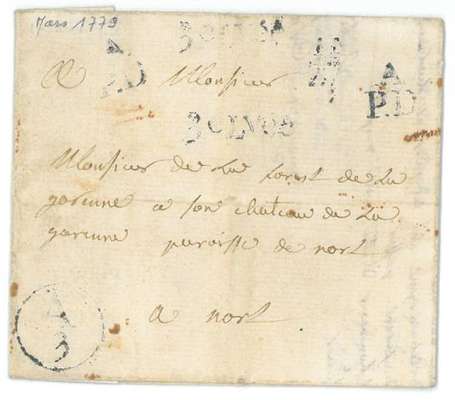 Mars 1779
A
P.D
A
P.D
A Monsieur
Monsieur de La forest de La
garenne a son chateau de La
garenne paroisse de nort
a nort